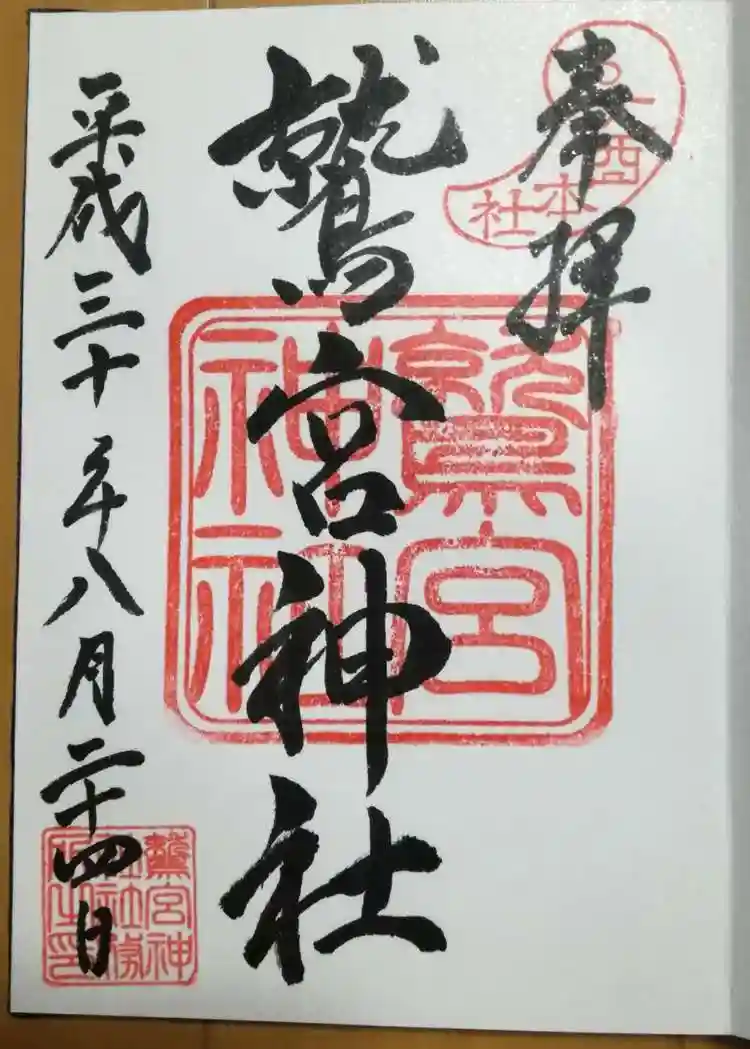 奉拝
酉
本社
鷲宮神社
鷲宮
神社
平成三十年八月二十四日
鷲宮神
社社務
所之印